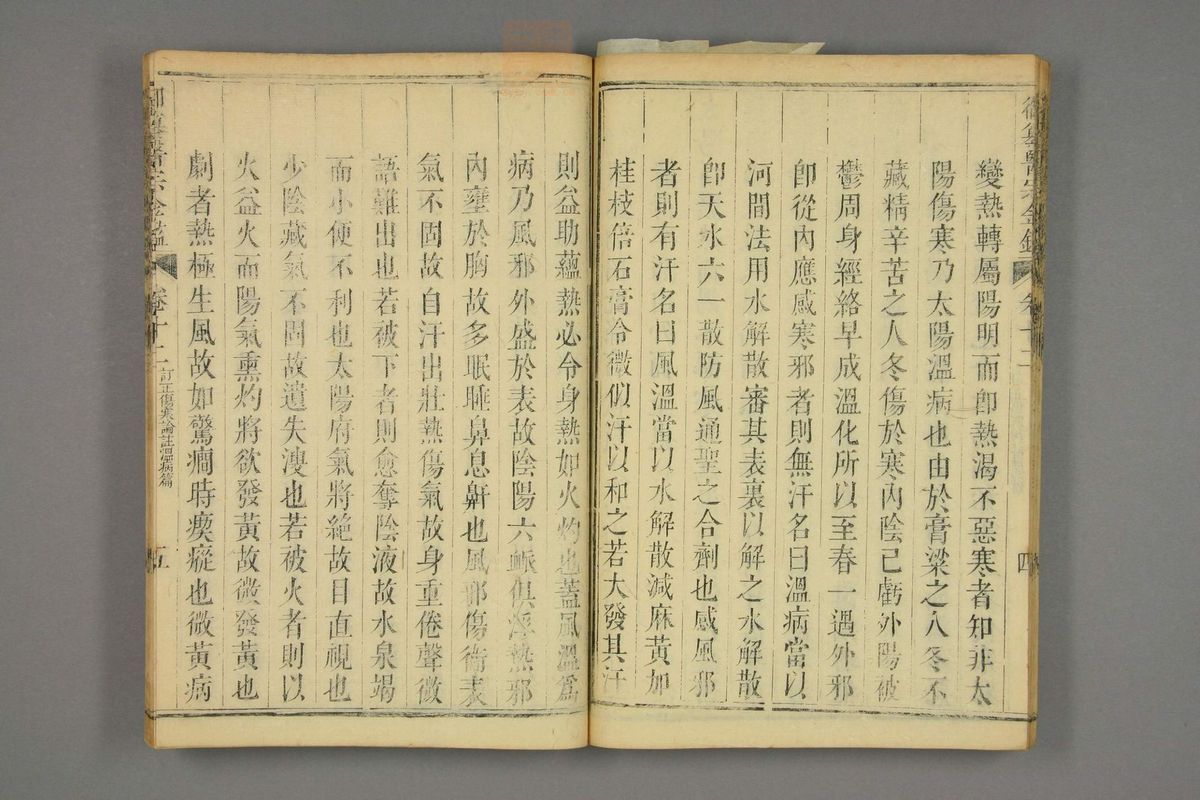 御纂醫宗金鑑 卷十二 四
變熱轉屬陽明而卽熱渴不惡寒者知非太
陽傷寒乃太陽溫病也由於膏粱之人冬不
藏精辛苦之人冬傷於寒內陰已虧外陽被
鬱周身經絡早成溫化所以至春一遇外邪
卽從內應感寒邪者則無汗名曰溫病當以
河間法用水解散審其表裏以解之水解散
卽天水六一散防風通聖之合劑也感風邪
者則有汗名曰風溫當以水解散減麻黃加
桂枝倍石膏令微似汗以和之若大發其汗
則益助蘊熱必令身熱如火灼也蓋風溫爲
病乃風邪外盛於表故陰陽六脈俱浮熱邪
內壅於胸故多眠睡鼻息鼾也風邪傷衛表
氣不固故自汗出壯熱傷氣故身重倦聲微
語難出也若被下者則愈奪陰液故水泉竭
而小便不利也太陽府氣將絕故目直視也
少陰藏氣不固故遺失溲也若被火者則以
火益火而陽氣熏灼將欲發黃故微發黃也
劇者熱極生風故如驚癎時瘈瘲也微黃病
御纂醫宗金鑑 卷十二 訂正傷寒論註溫病篇 五